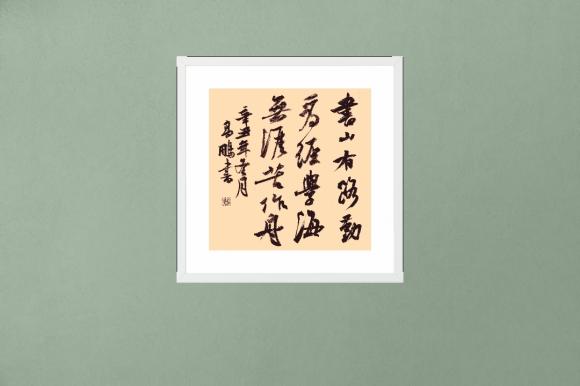 書山有路勤
為徑學海
無涯苦作舟
辛丑年冬月
高鵬書